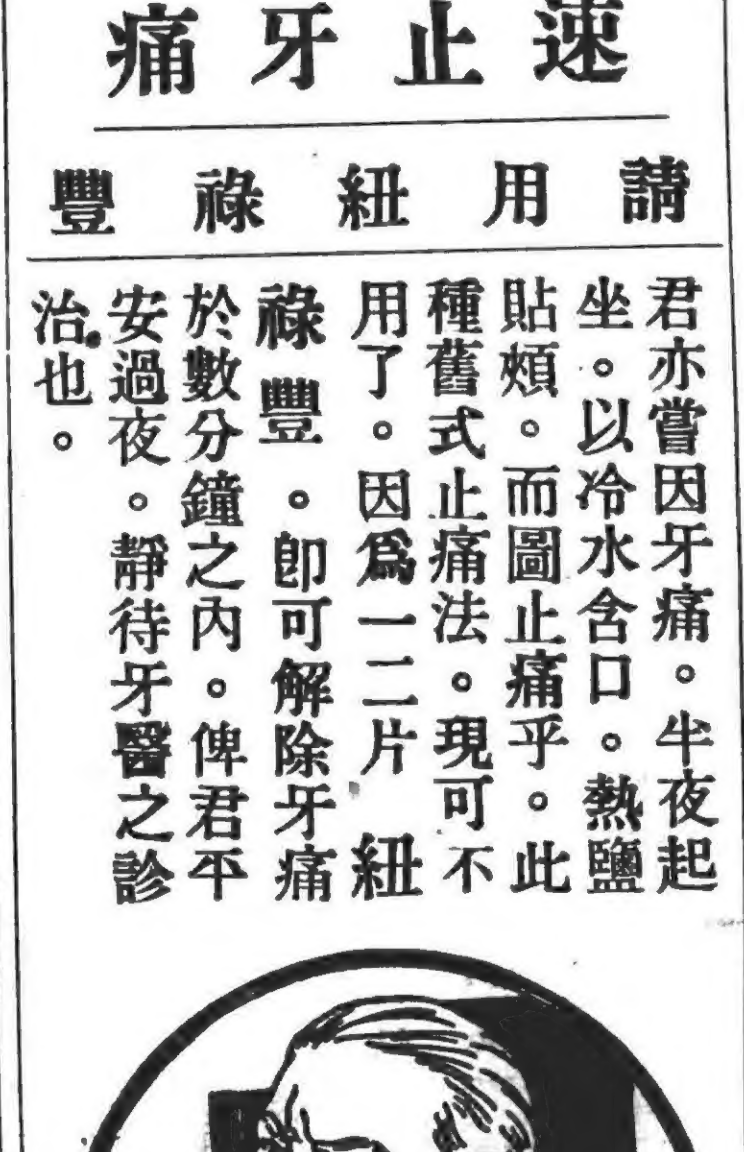 速止牙痛
請用紐祿豐
君亦嘗因牙痛。半夜起
坐。以冷水含口。熱鹽
貼頰。而圖止痛乎。此
種舊式止痛法。現可不
用了。因爲一二片 紐
祿豐。即可解除牙痛
於數分鐘之內。俾君平
安過夜。靜待牙醫之診
治也。